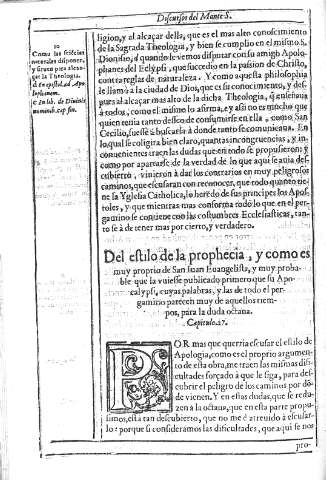 Discursos del Monte S.
10
Como las sciẽcias
naturales disponen,
y siruen para alcan-
çar la Theologia.
d In epistol. ad Apo
lophanem.
e In lib. de Diuinis
nominib. cap. fin.
ligion, y al alcaçar della, que es el mas alto conocimiento
de la Sagrada Theologia, y bien se cumplio en el mismo S.
Dionisio, d quando le vemos disputar con su amigo Apolo
phanes del Eclypsi, que succedio en la passion de Christo,
contra reglas de naturaleza. Y como aquesta philosophia
le llamò a la ciudad de Dios, que es su conocimiento, y des-
pues al alcaçar mas alto de la dicha Theologia, q̃ enseñaua
à todos, como el mismo lo afirma, e y assi no es mucho que
quien tenia tanto desseo de consumirse en ella, como San
Cecilio, fuesse à buscarla à donde tanto se comunicaua. En
lo qual se coligira bien claro, quantas incongruencias, y in-
conuenientes traen las dudas que en esto se propusieron: y
como por apartarse de la verdad de lo que aqui se auia des-
cubierto, vinieron à dar los contrarios en muy peligrosos
caminos, que escusaran con reconocer, que todo quanto tie-
ne la Yglesia Catholica, lo heredo de sus principes los Apos-
toles, y que mientras mas conforma todo lo que en el per-
gamino se contiene con las costumbres Ecclesiasticas, tan-
to se à de tener mas por cierto, y verdadero.
Del estilo de la prophecia, y como es
muy proprio de San Iuan Euangelista, y muy proba-
ble que la vuiesse publicado primero que su Apo-
calypsi, cuyas palabras, y las de todo el per-
gamino parecen muy de aquellos tiem-
pos, para la duda octaua.
Capitulo.17.
POR mas que querria escusar el estilo de
Apologia, como es el proprio argumen-
to de esta obra, me traen las mismas difi-
cultades forçado à que le siga, para des-
cubrir el peligro de los caminos por dõ-
de vienen. Y en estas dudas, que se redu-
zen a la octaua, que en esta parte propu-
simos, està tan descubierto, que no me è atreuido à escusar-
lo: porque si consideramos las dificultades, que aqui se nos
pro-